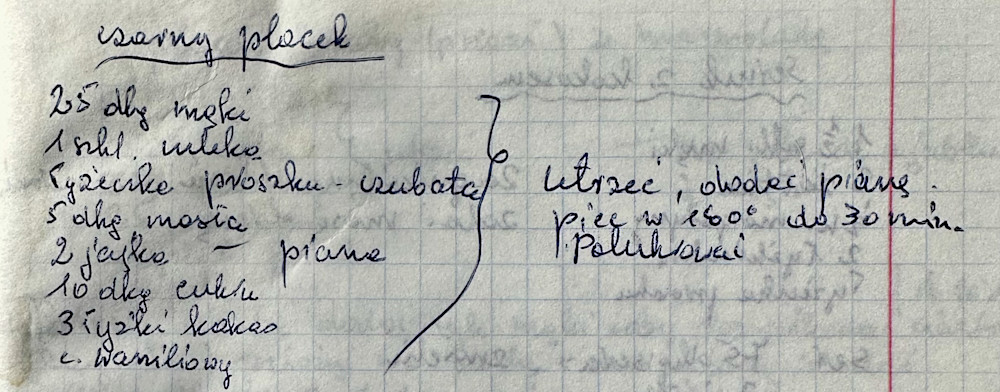 czarny placek
25 dkg mąki
1 szkl. mleka
łyżeczka proszku - czubata
5 dkg masła
2 jajka - piana
10 dkg cukru
3 łyżki kakao
c. waniliowy
utrzeć, dodać pianę.
piec w 180° do 30 min.
Polukrować